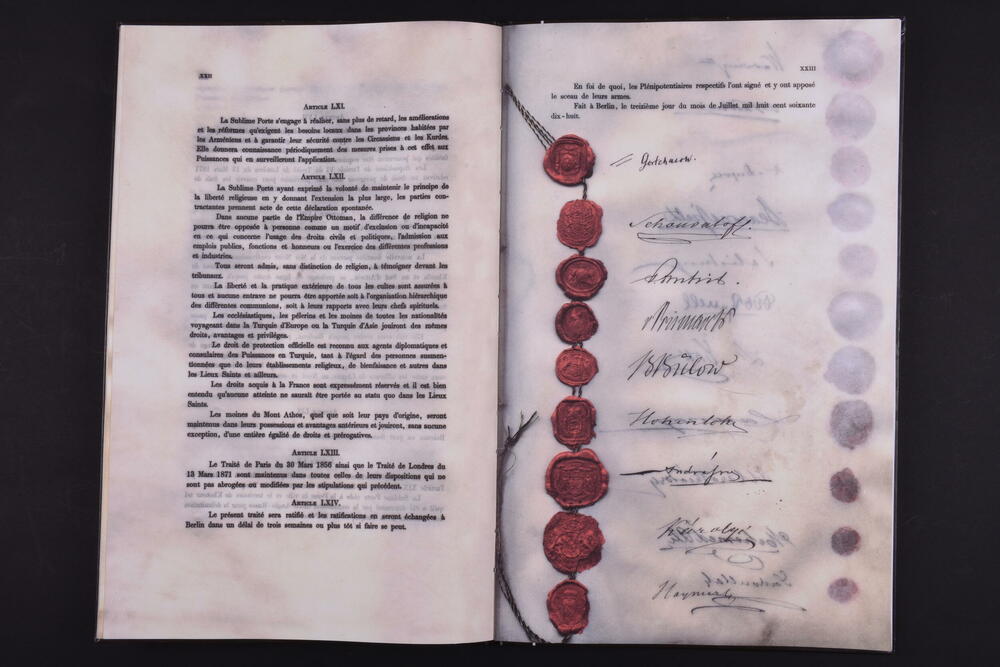 XXII
ARTICLE LXI.
La Sublime Porte s'engage à réaliser, sans plus de retard, les améliorations
et les réformes qu'exigent les besoins locaux dans les provinces habitées par
les Arméniens et à garantir leur sécurité contre les Circassiens et les Kurdes.
Elle donnera connaissance périodiquement des mesures prises à cet effet aux
Puissances qui en surveilleront l'application.
ARTICLE LXII.
La Sublime Porte ayant exprimé la volonté de maintenir le principe de
la liberté religieuse en y donnant l'extension la plus large, les parties con-
tractantes prennent acte de cette déclaration spontanée.
Dans aucune partie de l'Empire Ottoman, la différence de religion ne
pourra être opposée à personne comme un motif d'exclusion ou d'incapacité
en ce qui concerne l'usage des droits civils et politiques, l'admission aux
emplois publics, fonctions et honneurs ou l'exercice des différentes professions
et industries.
Tous seront admis, sans distinction de religion, à témoigner devant les
tribunaux.
La liberté et la pratique extérieure de tous les cultes sont assurées à
tous et aucune entrave ne pourra être apportée soit à l'organisation hiérarchique
des différentes communions, soit à leurs rapports avec leurs chefs spirituels.
Les ecclésiastiques, les pélerins et les moines de toutes les nationalités
voyageant dans la Turquie d'Europe ou la Turquie d'Asie jouiront des mêmes
droits, avantages et priviléges.
Le droit de protection officielle est reconnu aux agents diplomatiques et
consulaires des Puissances en Turquie, tant à l'égard des personnes susmen-
tionnées que de leurs établissements religieux, de bienfaisance et autres dans
les Lieux Saints et ailleurs.
Les droits acquis à la France sont expressément réservés et il est bien
entendu qu'aucune atteinte ne saurait être portée au statu quo dans les Lieux
Saints.
Les moines du Mont Athos, quel que soit leur pays d'origine, seront
maintenus dans leurs possessions et avantages antérieurs et jouiront, sans aucune
exception, d'une entière égalité de droits et prérogatives.
ARTICLE LXIII.
Le Traité de Paris du 30 Mars 1856 ainsi que le Traité de Londres du
13 Mars 1871 sont maintenus dans toutes celles de leurs dispositions qui ne
sont pas abrogées ou modifiées par les stipulations qui précèdent.
ARTICLE LXIV.
Le présent traité sera ratifié et les ratifications en seront échangées à
Berlin dans un délai de trois semaines ou plus tôt si faire se peut.
XXIII
En foi de quoi, les Plénipotentiaires respectifs l'ont signé et y ont apposé
le sceau de leurs armes.
Fait à Berlin, le treizième jour du mois de Juillet mil huit cent soixante
dix-huit.
Gortchacow.
Schouvaloff.
P. d'Oubril.
v Bismarck
B v Bülow
Hohenlohe
Andrássy
Károlyi
Haymerle